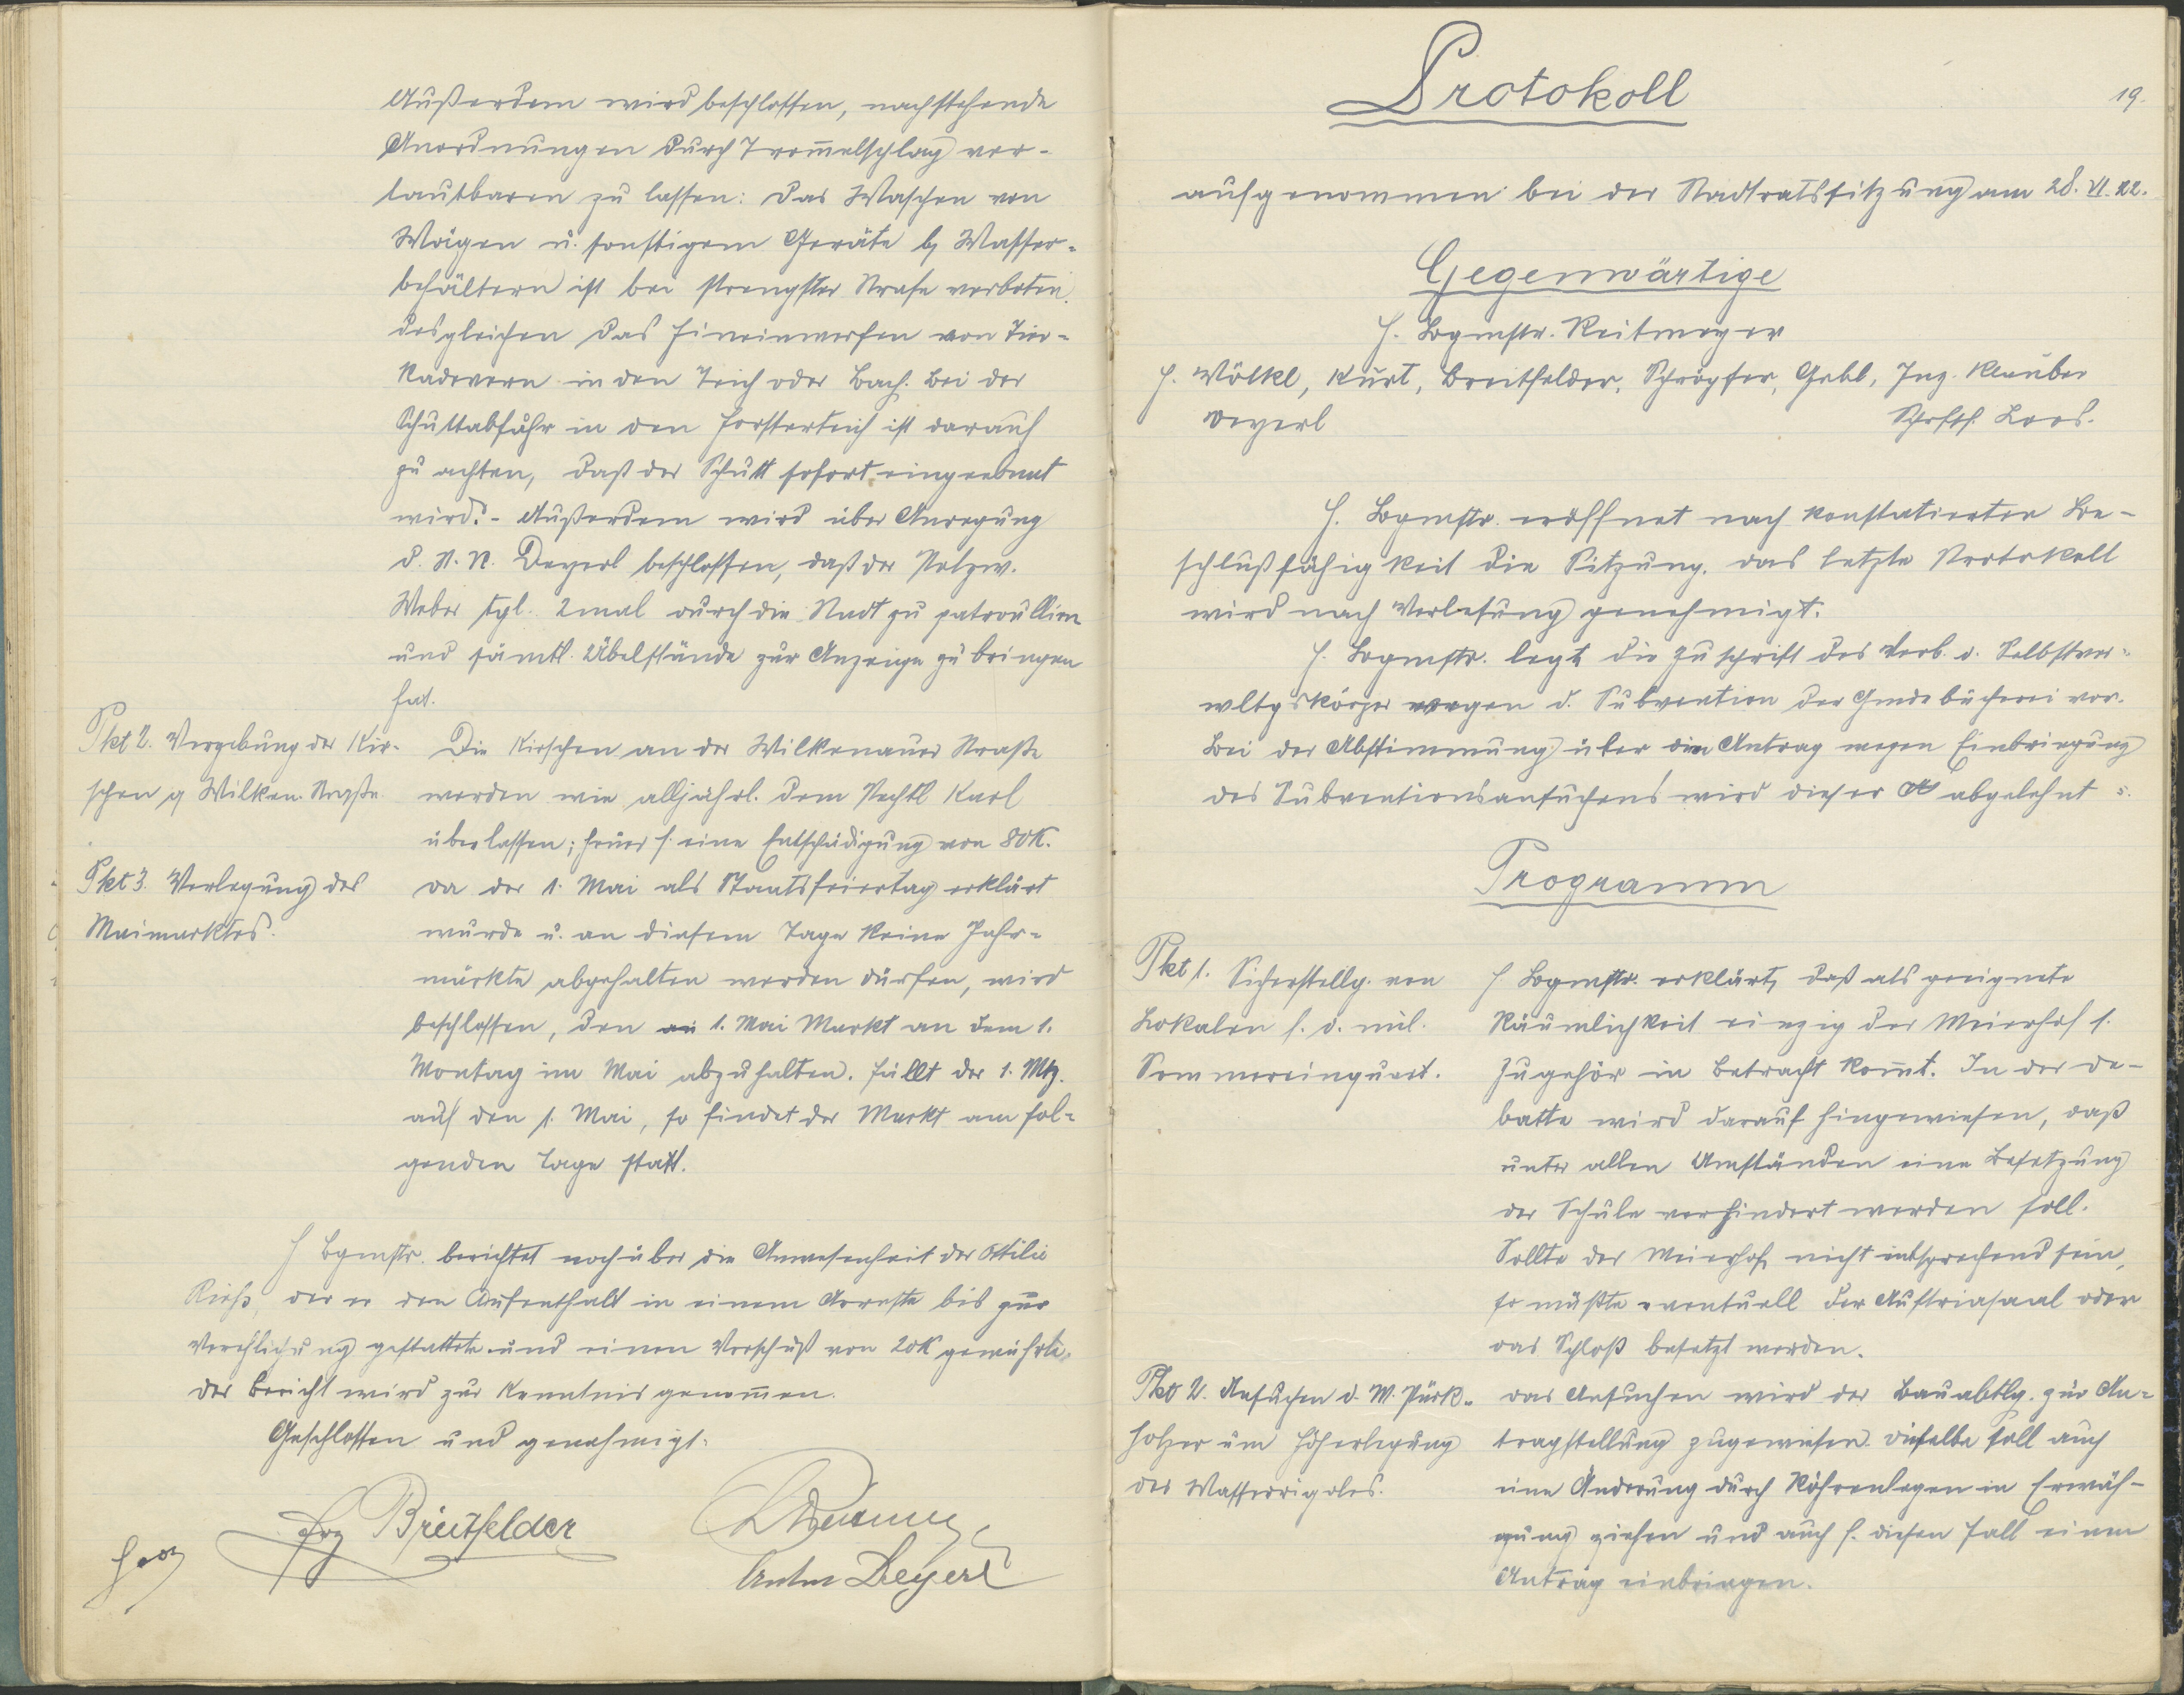 Außerdem wird beschlossen, nachstehende
Anordnungen durch Trom̄elschlag ver-
lautbaren zu lassen: Das Waschen von
Wägen u. sonstigem Geräte b/ Wasser-
behältern ist bei strengster Strafe verboten.
desgleichen das Hineinwerfen von Tier-
kadavern in den Teich oder Bach. Bei der
Schuttabfuhr in den Forsterteich ist darauf
zu achten, daß der Schutt sofort eingeebnet
wird. - Außerdem wird über Anregung
d. St. R. Deyerl beschlossen, daß der
Weber tgl. 2mal durch die Stadt zu patroullieren
und sämtl. Übelstände zur Anzeige zu bringen
hat.
Pkt 2. Vergebung der Kir-
schen a/ Wilken. Straße.
Die Kirschen an der Wilkenauer Straße
werden wie alljährl. dem Pechtl Karl
überlassen; heuer f. eine Entschädigung von 80K.
Pkt 3. Verlegung des
Maimarktes.
da der 1. Mai als Staatsfeiertag erklärt
wurde u. an diesem Tage keine Jahr-
märkte abgehalten werden dürfen, wird
beschlossen, den 1. Mai Markt an dem 1.
Montag im Mai abzuhalten. Fällt der 1. Mtg.
auf den 1. Mai, so findet der Markt am fol-
genden Tage statt.
H Bgmstr. berichtet noch über die Anwesenheit der Ottilie
Rieß, der er den Aufenthalt in einem Arreste bis zur
Verehlichung gestattete und einen Vorschuß von 20K gewährte.
der Bericht wird zur Kenntnis genom̄en.
Geschlossen und genehmigt.
Breitfelder
Anton Deyerl
Protokoll
19.
aufgenommen bei der Stadtratssitzung am 28. VI. 22.
Gegenwärtige
H. Bgmstr. Reitmeyer
H. Wölkl, Kurt, Breitfelder, Schröpfer, Gebl, Ing. Klauber
Deyerl
Schrftf. Loos.
H. Bgmstr. eröffnet nach konstatierter Be-
schlußfähigkeit die Sitzung. das letzte Protokoll
wird nach Verlesung genehmigt.
H. Bgmstr. legt die Zuschrift des Verb. d. Selbstver-
wltgskörper wegen d. Subvention der Gmdebücherei vor.
Bei der Abstimmung über den Antrag wegen Einbringung
des Subventionsansuchens wird dieser abgelehnt
Programm
Pkt 1. Sicherstellg. von
Lokalen f. d. mil.
Sommereinquart.
H Bgmstr. erklärt, daß als geeignete
Räumlichkeit einzig der Meierhof s.
Zugehör in Betracht kom̄t. In der De-
batte wird darauf hingewiesen, daß
unter allen Umständen eine Besetzung
der Schule verhindert werden soll.
Sollte der Meierhof nicht entsprechend sein,
so müßte eventuell der Austriasaal oder
das Schloß besetzt werden.
Pkt 2. Ansuchen d. M. Pürk-
holzer um Höherlegung
des Wasserrigoles.
das Ansuchen wird der Bauabtlg. zur An-
tragstellung zugewiesen. dieselbe soll auch
eine Änderung durch Röhrenlegen in Erwäh-
gung ziehen und auch f. diesen Fall einen
Antrag einbringen.